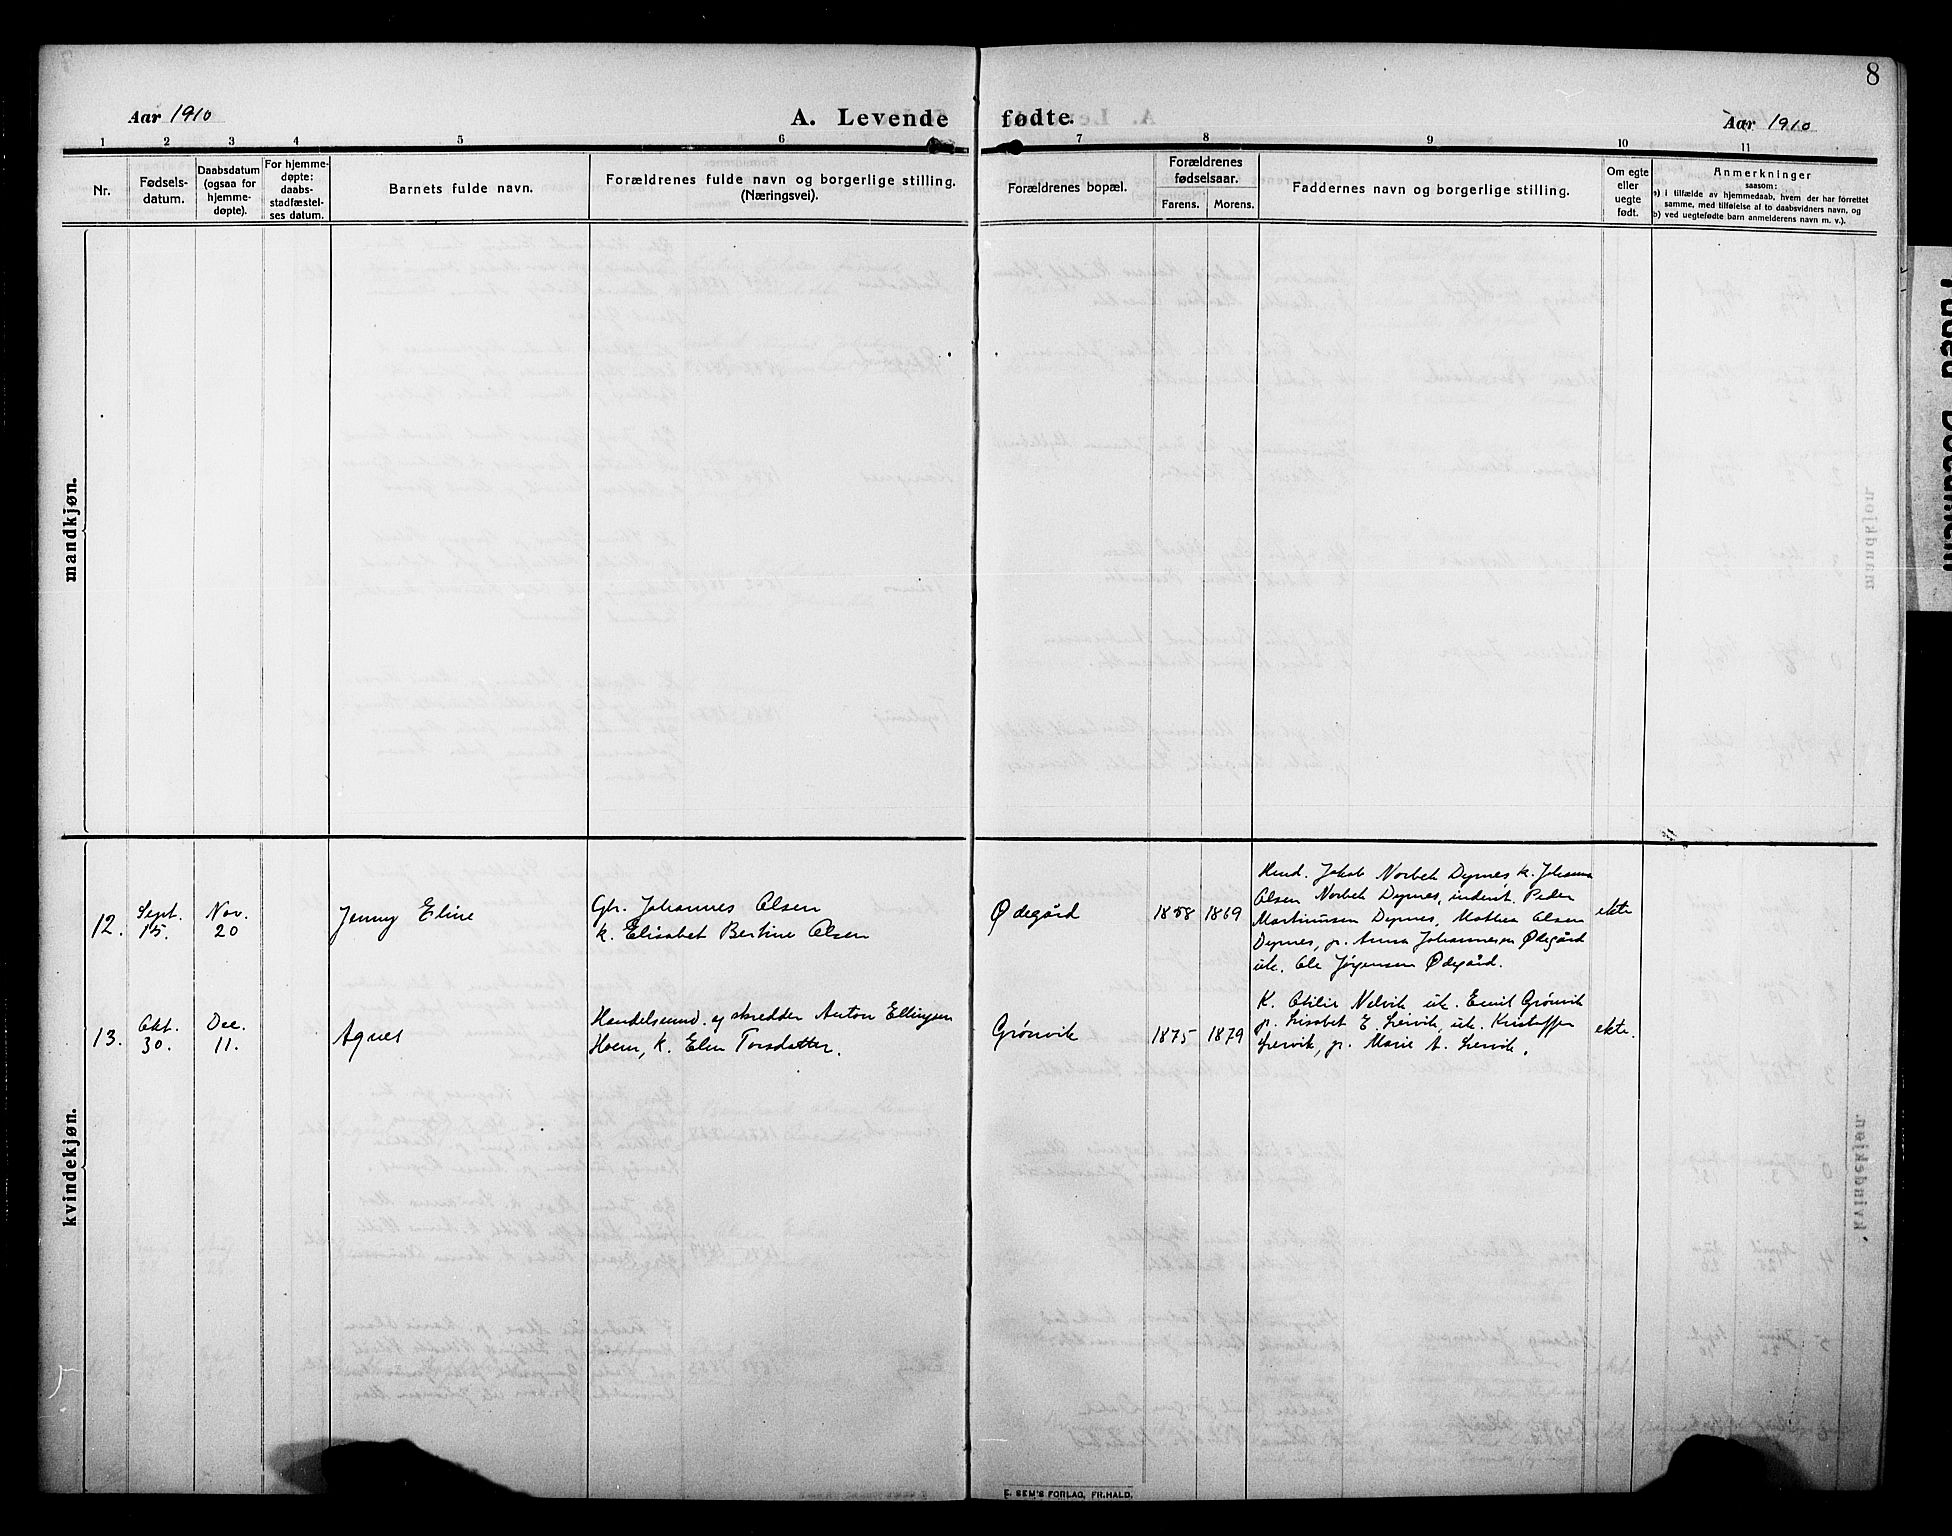 8
Aar 1910
A. Levende fødte.
Aar 1910
1 2 3 4 5 6 7 8 9 10 11
Nr.
Fødsels-
datum.
Daabsdatum
(ogsaa for
hjemme-
døpte).
For hjemme-
døpte:
daabs-
stadfæstel-
ses datum.
Barnets fulde navn.
Forældrenes fulde navn og borgerlige stilling.
(Næringsvei).
Forældrenes bopæl.
Forældrenes
fødselsaar.
Farens. Morens.
Faddernes navn og borgerlige stilling.
Om egte
eller
uegte
født.
Anmerkninger
saasom:
a) i tilfælde av hjemmedaab, hvem der har forrettet
samme, med tilføielse af to daabsvidners navn, og
b) ved uegtefødte barn anmelderens navn m. v.).
mandkjøn.
kvindekjøn.
12.
Sept.
15.
Nov.
20
Jenny Eline
Gbr. Johannes Olsen
k. Elisabet Bertine Olsen
Ødegård
1858 1869
Hmd. Jakob Norbek Dyrnes k. Johanna
Olsen Norbek Dyrnes, inderst. Peder
Martinusen Dyrnes, Mathea Olsen
Dyrnes, p. Anna Johannesen Ødegård
uk. Ole Jørgensen Ødegård.
ekte
13.
Okt.
30.
Dec.
11.
Agnes
Handelsmnd. og skredder Anton Ellingsen
Hoem, k. Elen Torsdatter.
Grønvik
1875 1879
K. Otilie Nelvik uk. Emil Grønvik
p. Lisabet E. Leirvik, uk. Kristoffer
Leirvik, p. Marie A. Leirvik.
ekte.
E. SEM'S FORLAG, FR.HALD.